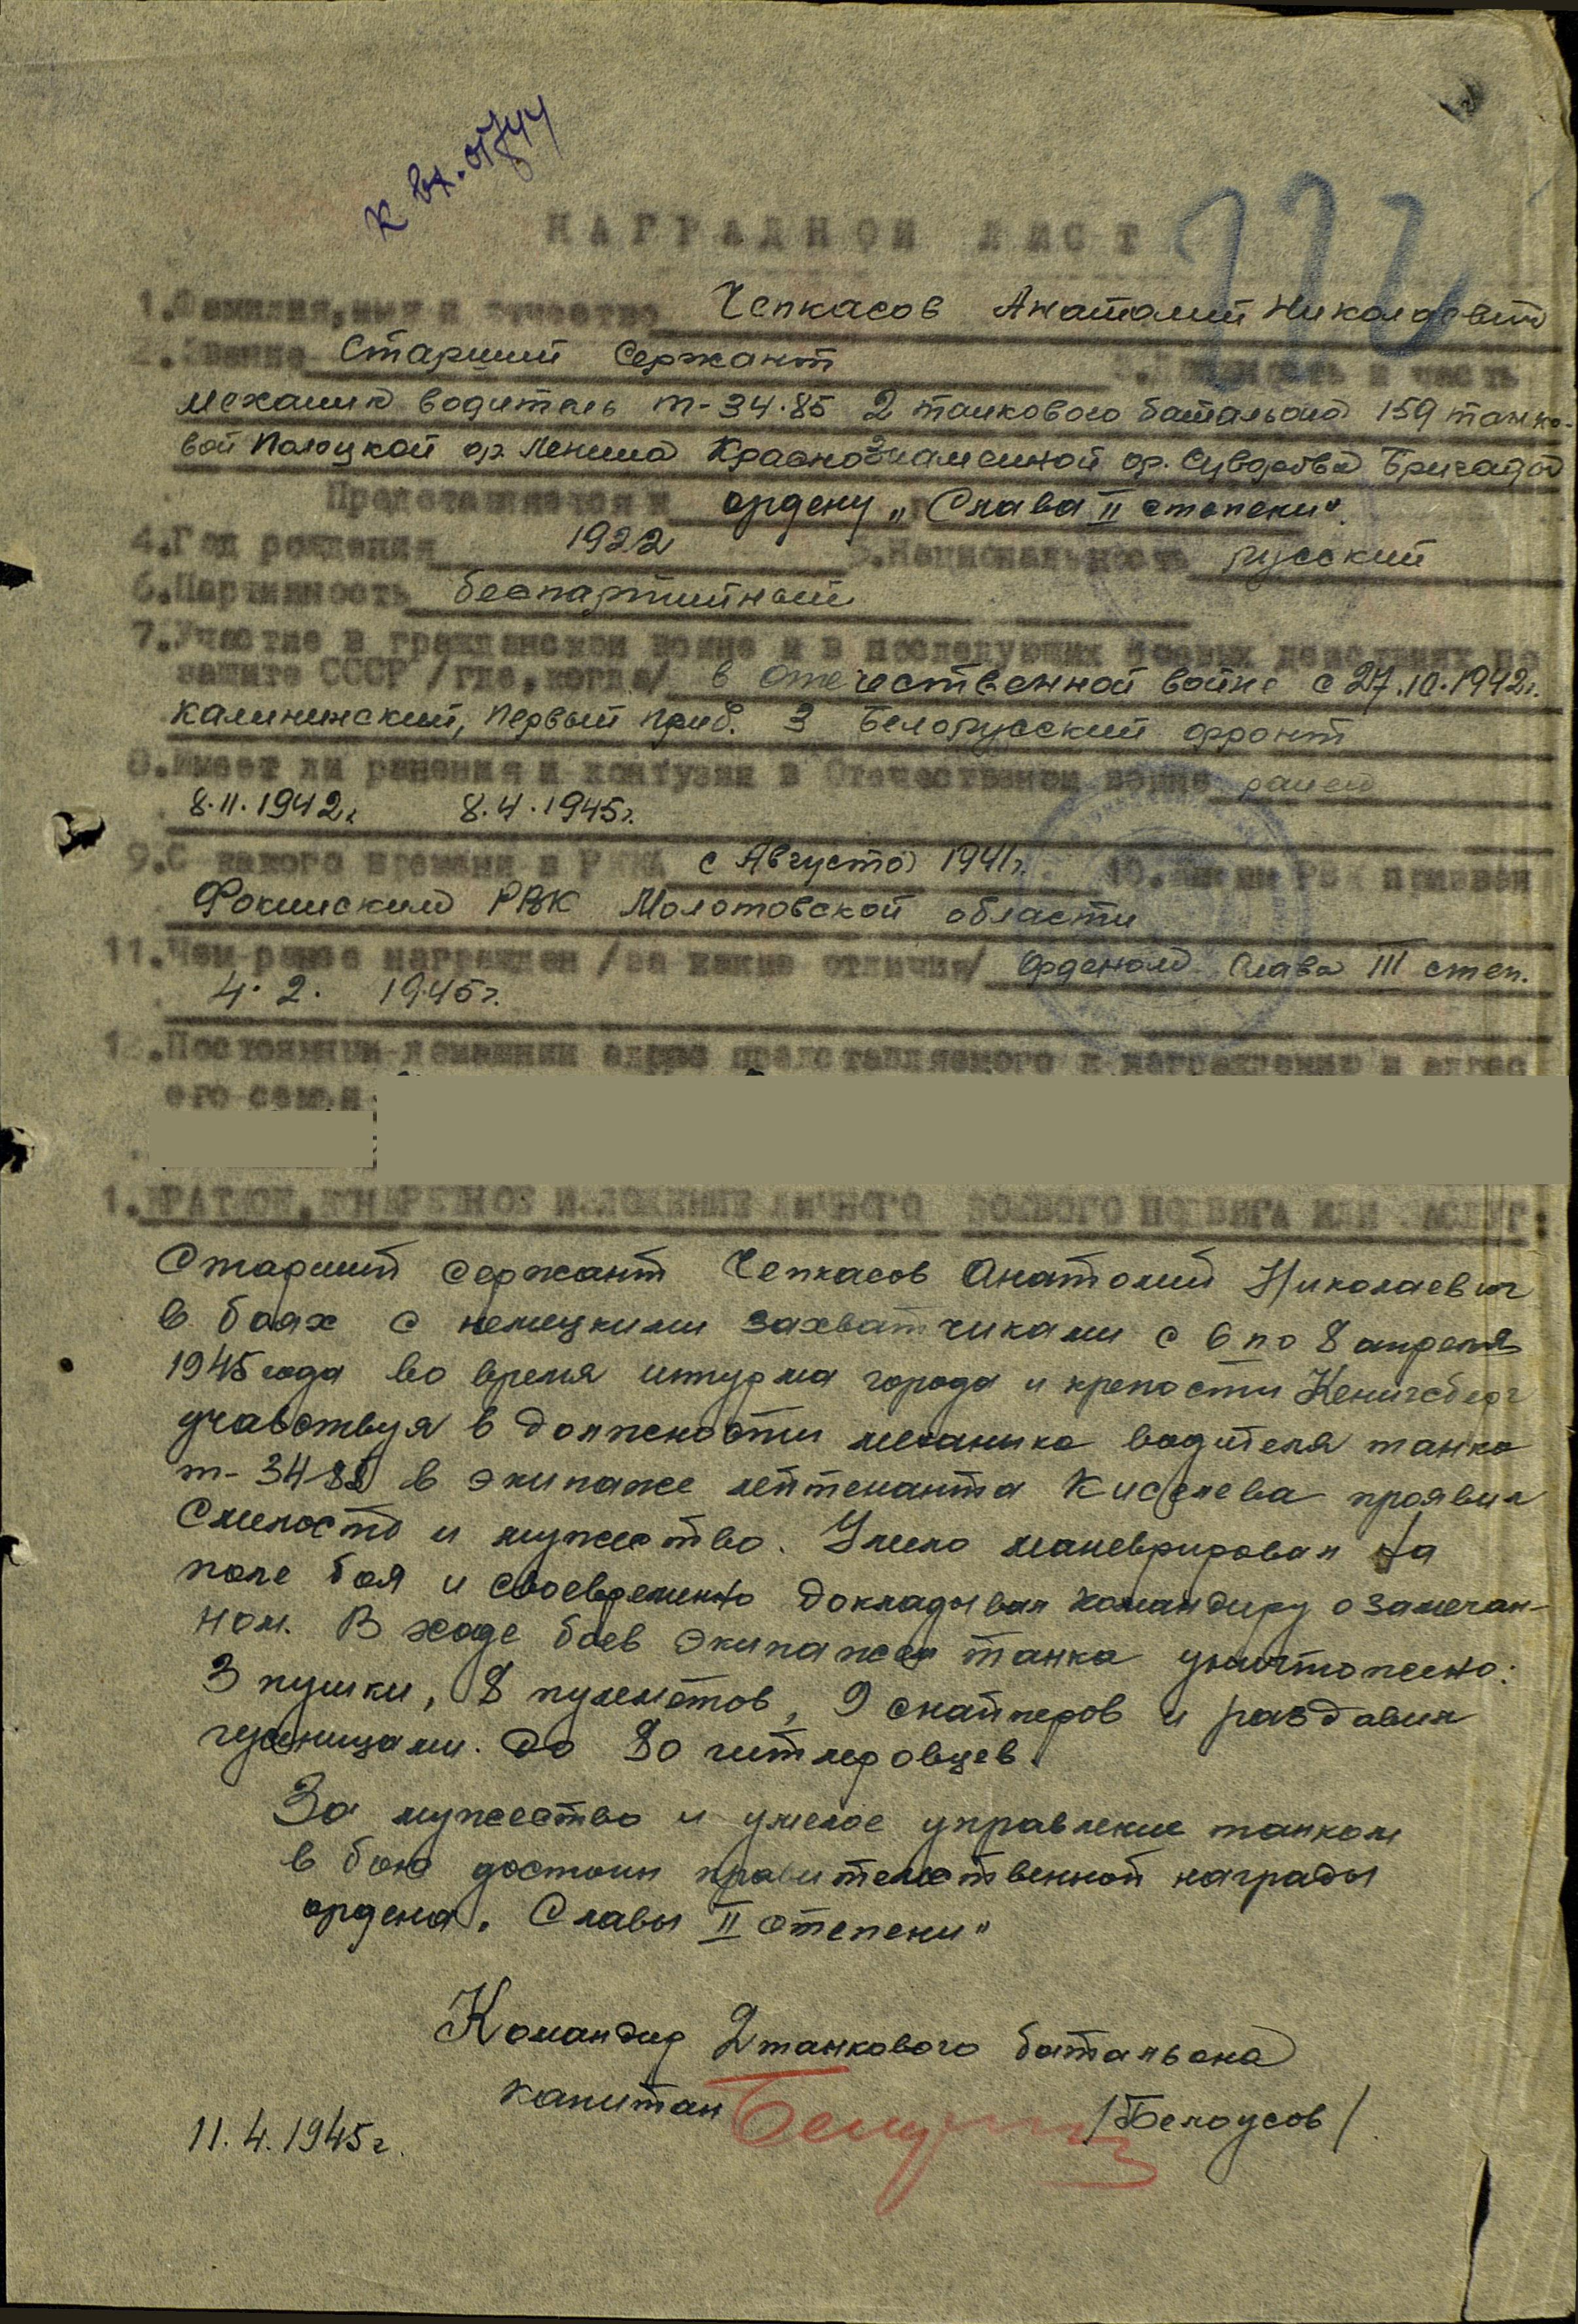 к вх. 01744
НАГРАДНОЙ ЛИСТ
1.Фамилия,имя и отчество Чепкасов Анатолий Николаевич
2.Звание Старший Сержант 3.Должность и часть
механик водитель т-34-85 2 танкового батальона 159 танко-
вой Полоцкой ор. Ленина Краснознаменной ор. Суворова Бригады
Представляется к ордену „Слава II степени".
4.Год рождения 1922 5.Национальность русский
6.Партийность беспартийный
7.Участие в гражданской войне и в последующих боевых действиях по
защите СССР /где,когда/ в Отечественной войне с 27.10.1942г.
Калининский, Первый приб. 3 Белорусский фронт
8.Имеет ли ранения и контузии в Отечественной войне ранен
8.11.1942г 8.4.1945г.
9.С какого времени в РККА с Августа 1941г. 10.Каким РВК призван
Фокинским РВК Молотовской области
11.Чем ранее награжден /за какие отличия/ Орденом Слава III степ.
4.2. 1945г.
12.Постоянный домашний адрес представляемого к награждению и адрес
его семьи
1.КРАТКОЕ,КОНКРЕТНОЕ ИЗЛОЖЕНИЕ ЛИЧНОГО БОЕВОГО ПОДВИГА ИЛИ ЗАСЛУГ:
Старший сержант Чепкасов Анатолий Николаевич
в боях с немецкими захватчиками с 6 по 8 апреля
1945 года во время штурма города и крепости Кенигсберг
учавствуя в должности механика водителя танка
т-34-85 в экипаже лейтенанта Киселева проявил
Смелость и мужество. Умело маневрировал на
поле боя и своевременно докладывал командиру о замечан-
ном. В ходе боев экипажем танка уничтожено:
3 пушки, 8 пулеметов, 9 снайперов и раздавил
гусеницами до 80 гитлеровцев.
За мужество и умелое управление танком
в бою достоин правительственной награды
ордена „Славы II степени"
Командир 2 танкового батальона
капитан /Белоусов/
11.4.1945г.